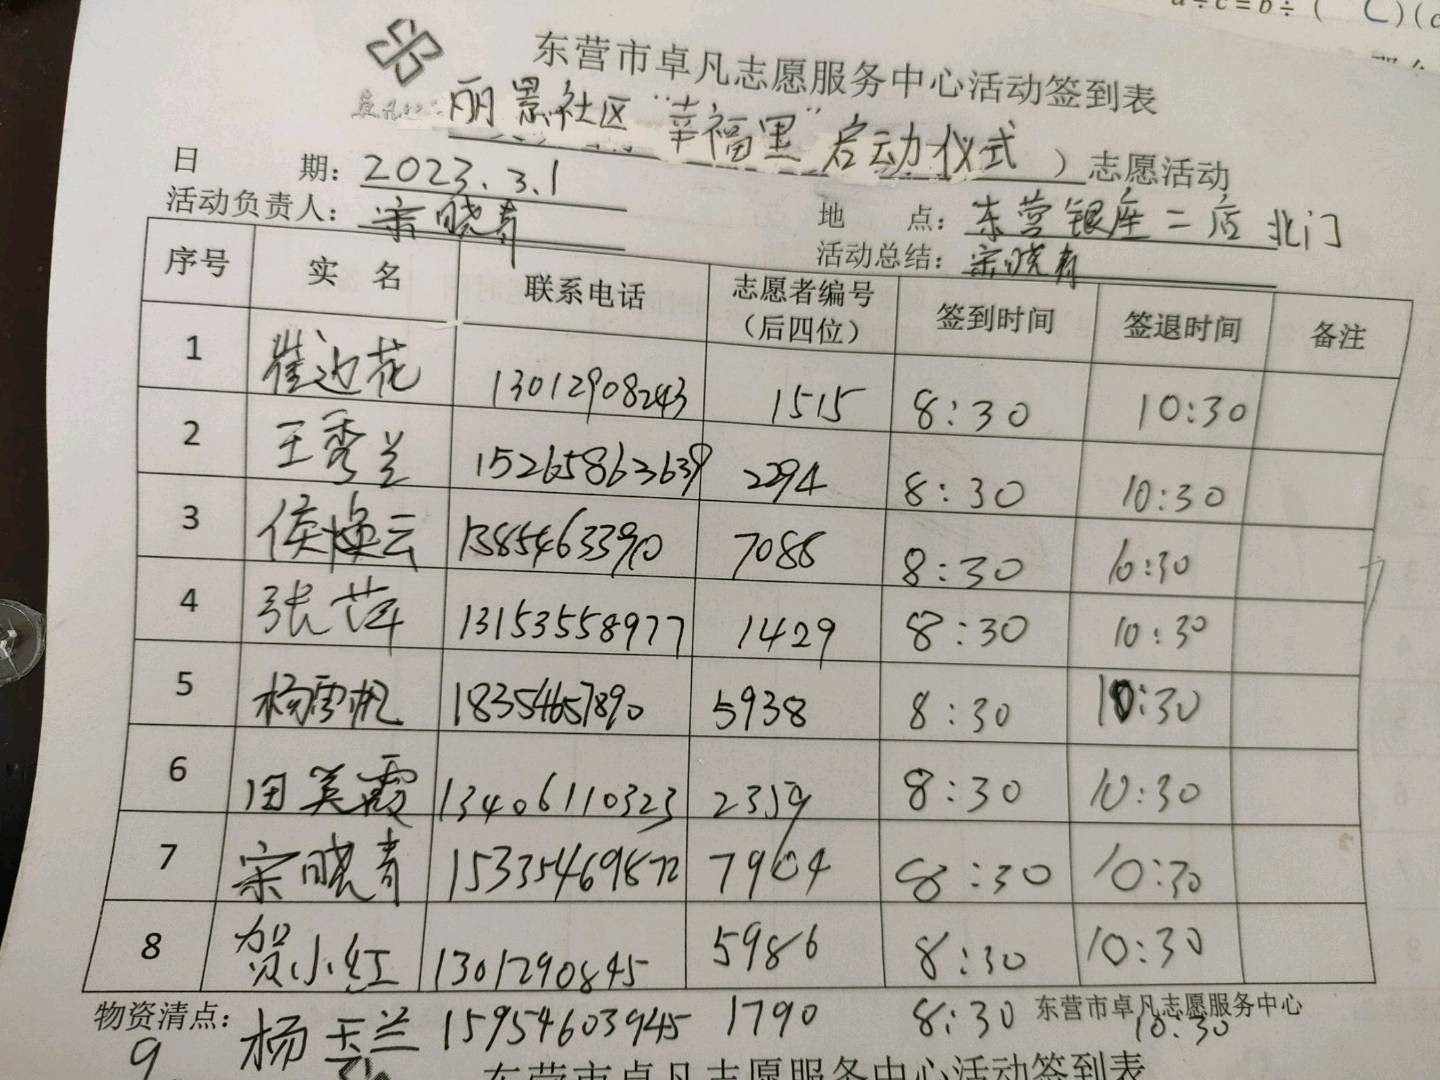 a÷c=b÷(
东营市卓凡志愿服务中心活动签到表
丽景社区“幸福里”启动仪式）志愿活动
日 期：2023.3.1
地 点：东营银座二店北门
活动负责人：宋晓青
活动总结：宋晓青
序号 实 名 联系电话 志愿者编号（后四位） 签到时间 签退时间 备注
1 崔边花 13012908243 1515 8:30 10:30
2 王秀兰 15265863639 2294 8:30 10:30
3 侯焕云 1385463390 7088 8:30 10:30
4 张萍 13153558977 1429 8:30 10:30
5 杨雪帆 18354657890 5938 8:30 10:30
6 田美霞 13406110323 2359 8:30 10:30
7 宋晓青 15335469872 7904 8:30 10:30
8 贺小红 1301290845 5986 8:30 10:30
物资清点： 东营市卓凡志愿服务中心
9 杨玉兰 15954603945 1790 8:30 10:30
东营市卓凡志愿服务中心活动签到表